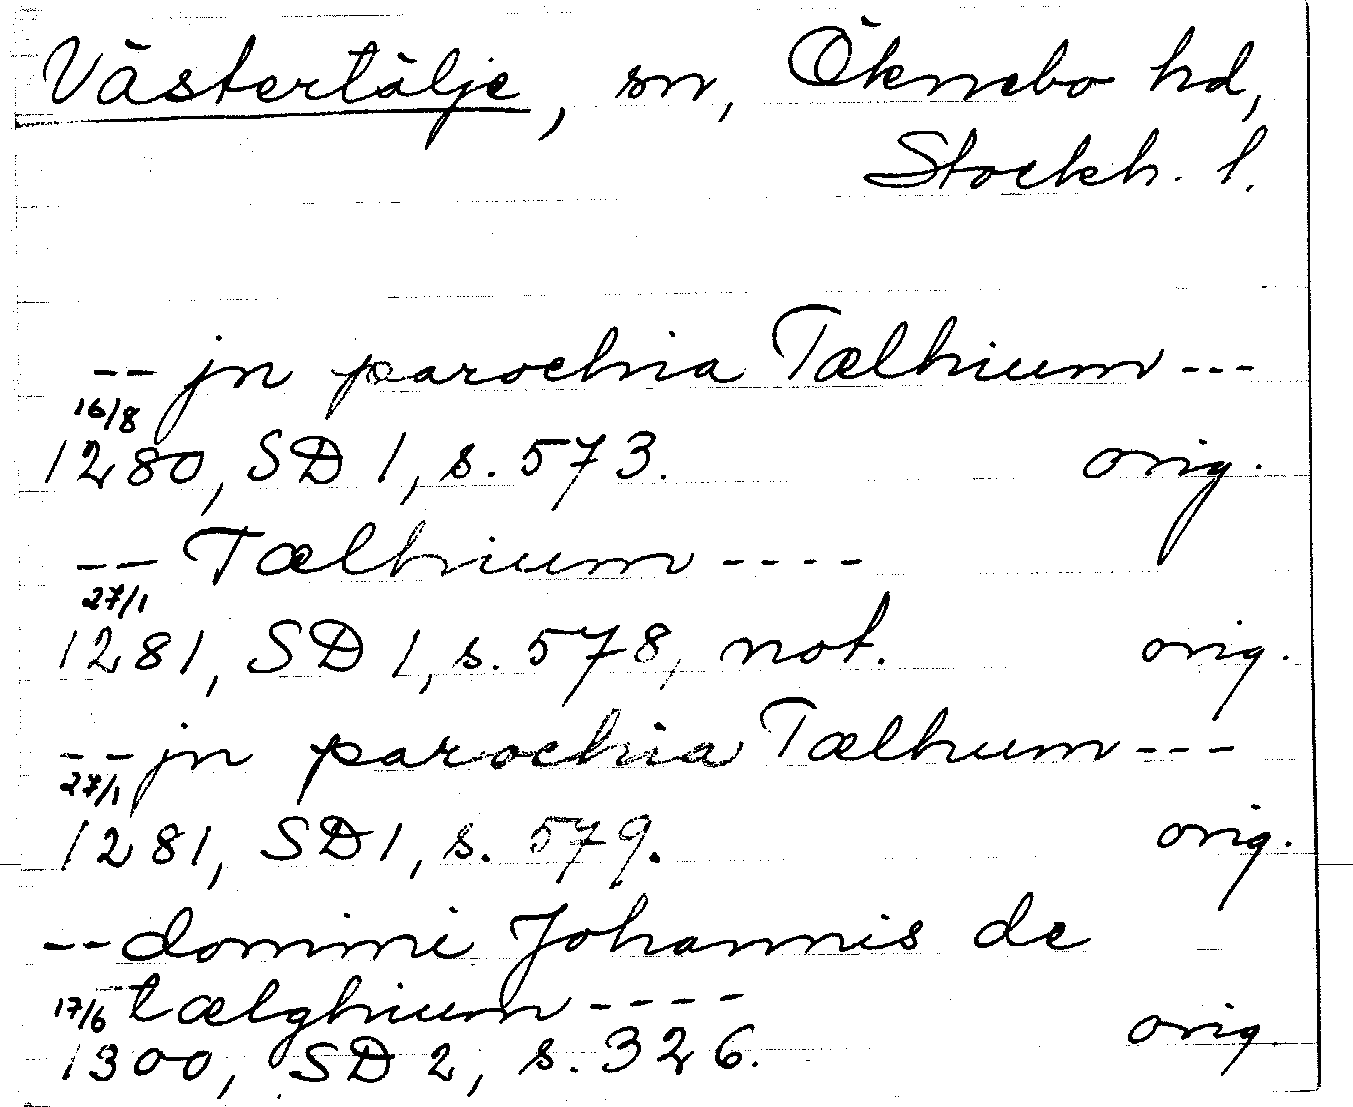 Västertälje, sn, Öknebo hd,
Stockh. l.
-- jn parochia Tælhium ---
16/8
1280, SD 1, s. 573. orig.
-- Tælhium ----
27/1
1281, SD 1, s. 578, not. orig.
-- jn parochia Tælhum ---
27/1
1281, SD 1, s. 579. orig.
-- domini Johannis de
tælghium ----
17/6
1300, SD 2, s. 326. orig.